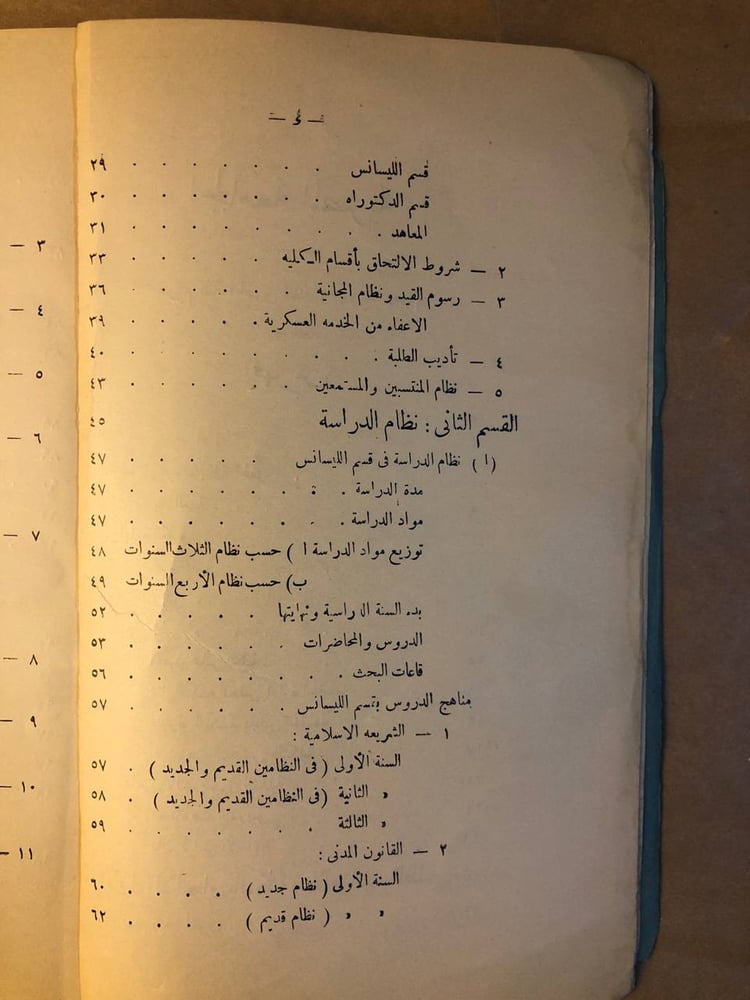 — ؤ —
قسم الليسانس . . . . . . . ٢٩
قسم الدكتوراه . . . . . . . ٣٠
المعاهد . . . . . . . . ٣١
٢ — شروط الالتحاق بأقسام الكليه . . . . . ٣٣
٣ — رسوم القيد ونظام المجانية . . . . . ٣٦
الاعفاء من الخدمه العسكرية . . . . . ٣٩
٤ — تأديب الطلبة . . . . . . . . ٤٠
٥ — نظام المنتسبين والمستمعين . . . . . ٤٣
القسم الثانى : نظام الدراسة ٤٥
( ا ) نظام الدراسة فى قسم الليسانس . . . . . ٤٧
مدة الدراسة . . . . . . . . ٤٧
مواد الدراسة . . . . . . . . ٤٧
توزيع مواد الدراسة ا ) حسب نظام الثلاث السنوات ٤٨
ب) حسب نظام الأربع السنوات ٤٩
بدء السنة الدراسية ونهايتها . . . . . ٥٢
الدروس والمحاضرات . . . . . . ٥٣
قاعات البحث . . . . . . . . ٥٦
مناهج الدروس بقسم الليسانس . . . . . . ٥٧
١ — الشريعه الاسلامية :
السنة الأولى ( فى النظامين القديم والجديد ) . ٥٧
« الثانية ( فى النظامين القديم والجديد ) . ٥٨
« الثالثة . . . . . . . ٥٩
٢ — القانون المدنى :
السنة الأولى ( نظام جديد ) . . . . ٦٠
« « ( نظام قديم ) . . . . ٦٢
٣ —
٤ —
٥ —
٦ —
٧ —
٨ —
٩ —
١٠ —
١١ —